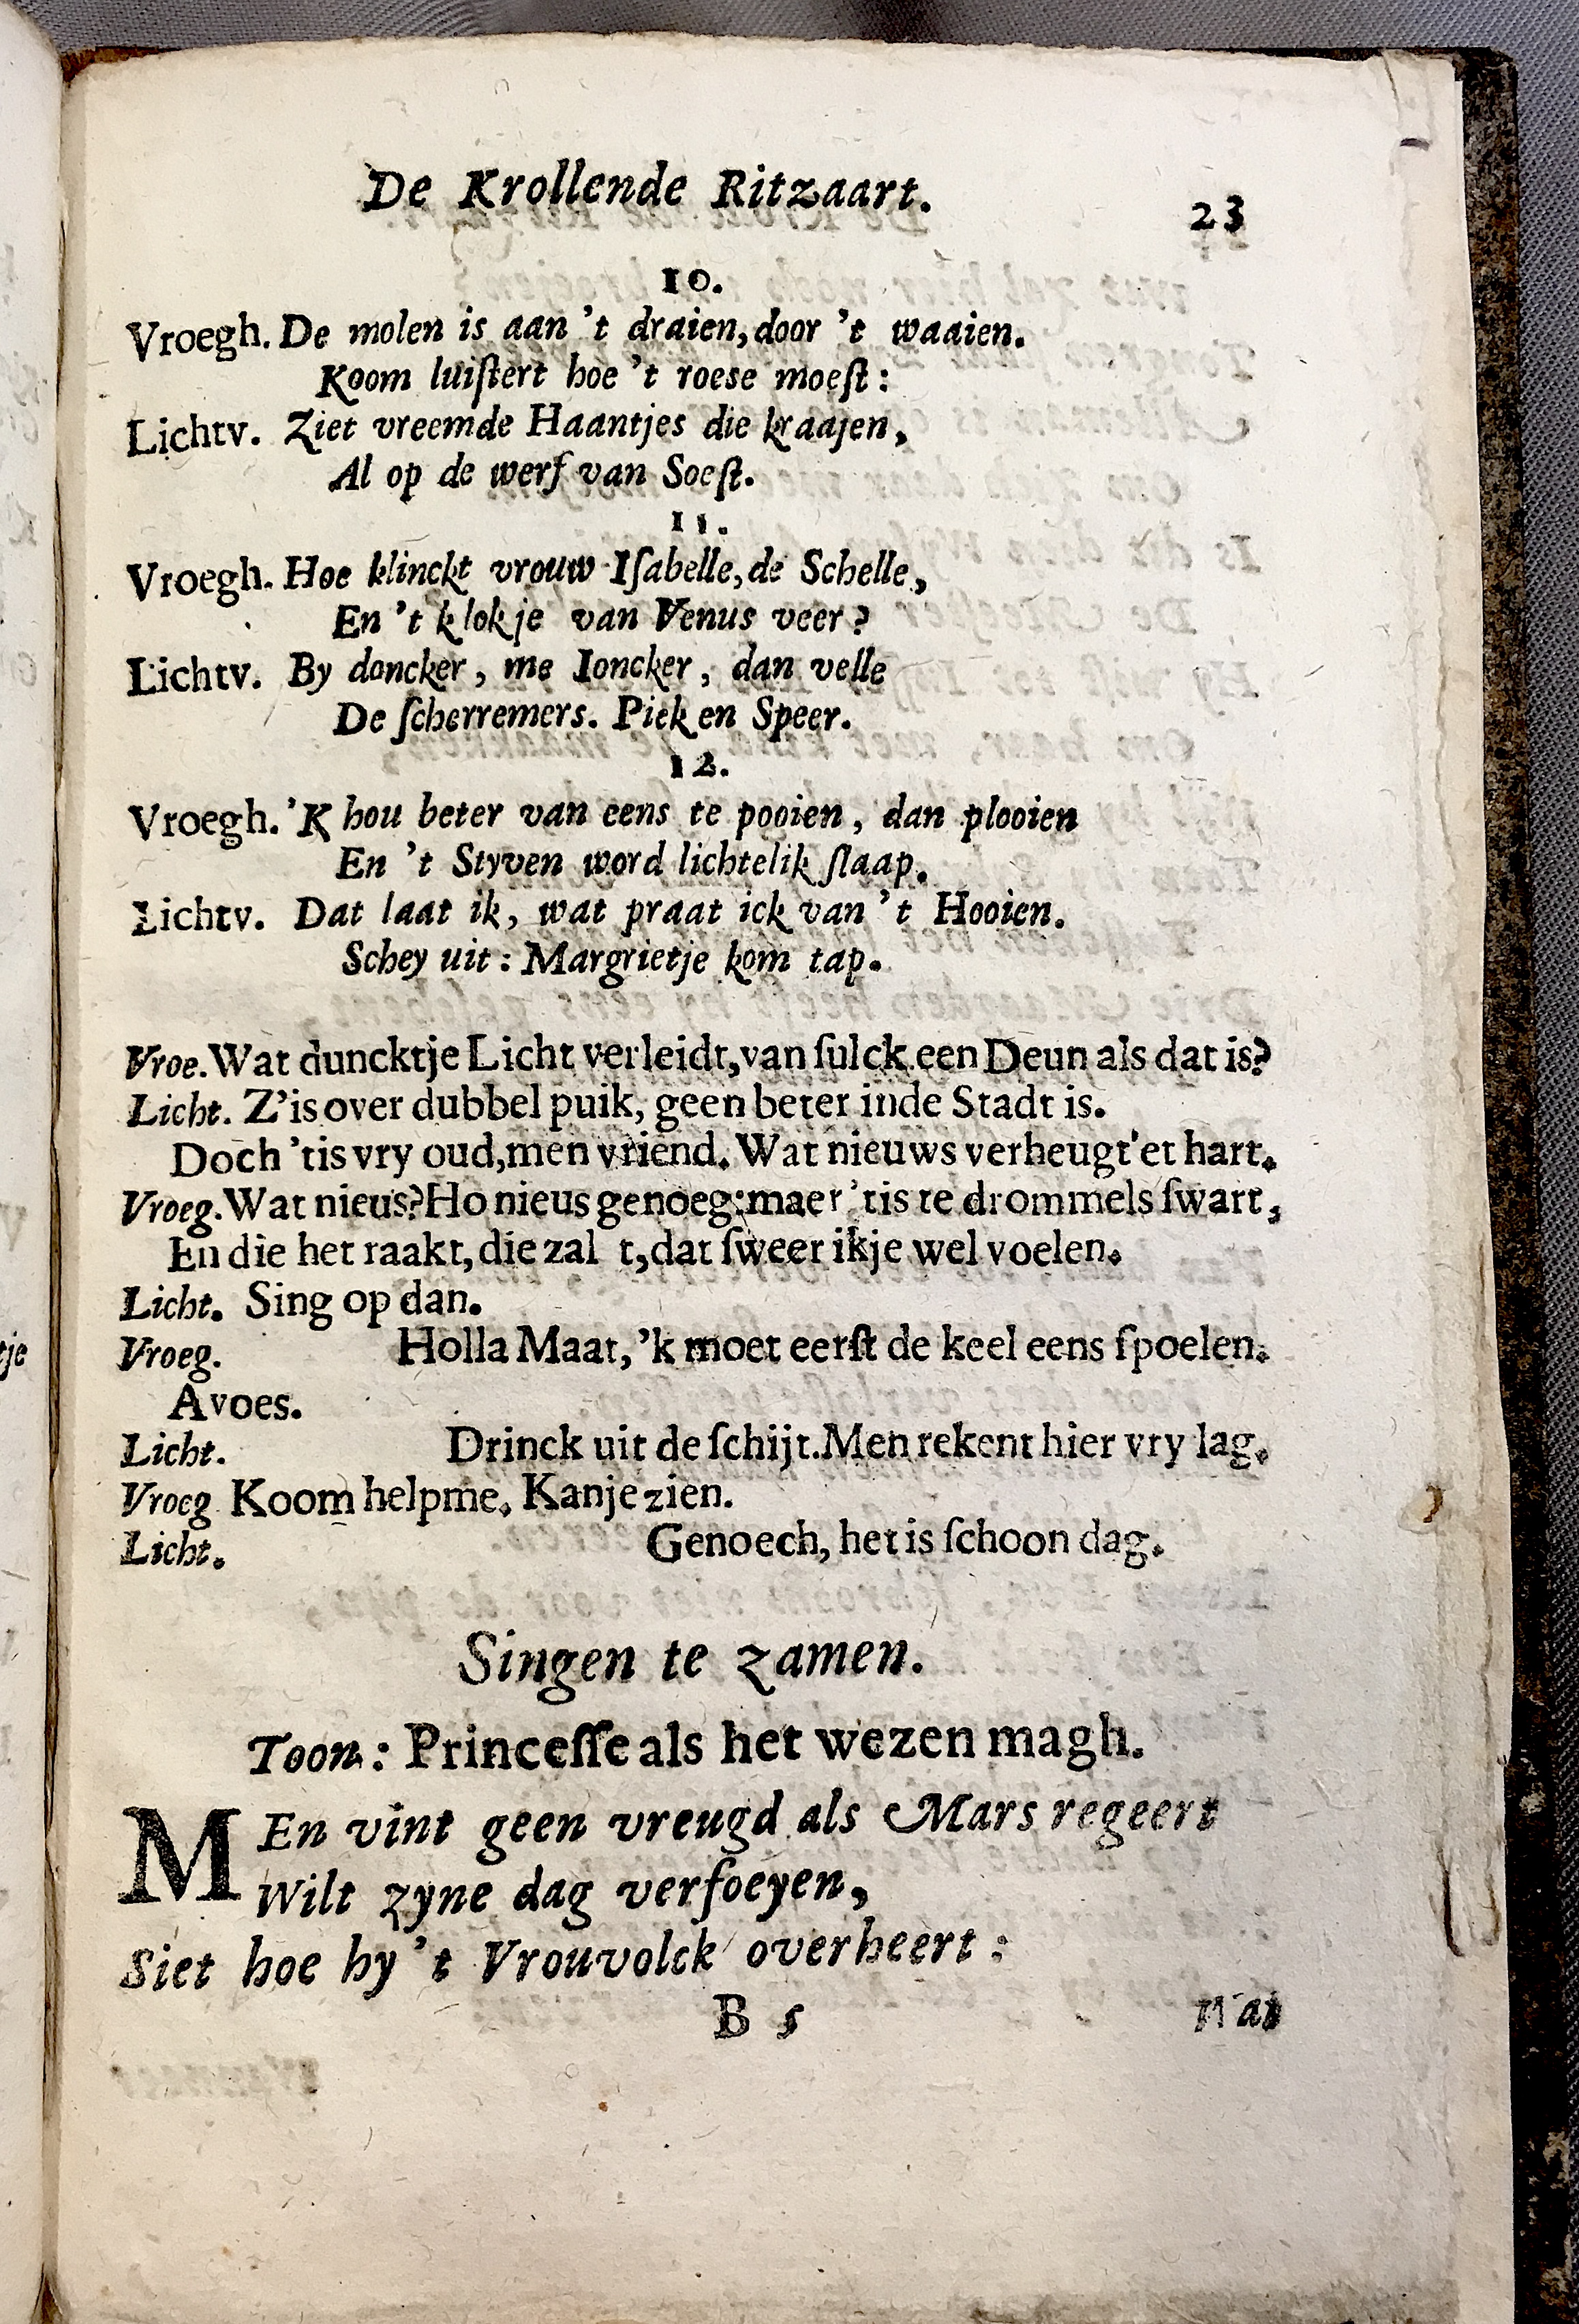 De Krollende Ritzaart.
23
10.
Vroegh. De molen is aan 't draien, door 't waaien.
Koom luiſtert hoe 't roese moeſt:
Lichtv. Ziet vreemde Haantjes die kraajen,
Al op de werf van Soeſt.
11.
Vroegh. Hoe klinckt vrouw Iſabelle, de Schelle,
En 't klokje van Venus veer?
Lichtv. By doncker, me Ioncker, dan velle
De ſcherremers. Piek en Speer.
12.
Vroegh. 'K hou beter van eens te pooien, dan plooien
En 't Styven word lichtelik ſlaap.
Lichtv. Dat laat ik, wat praat ick van 't Hooien.
Schey uit: Margrietje kom tap.
Vroe. Wat duncktje Licht verleidt, van ſulck een Deun als dat is?
Licht. Z'is over dubbel puik, geen beter inde Stadt is.
Doch 'tis vry oud, men vriend. Wat nieuws verheugt'et hart.
Vroeg. Wat nieus? Ho nieus genoeg: maer 'tis te drommels ſwart,
En die het raakt, die zal t, dat ſweer ikje wel voelen.
Licht. Sing op dan.
Vroeg. Holla Maat, 'k moet eerſt de keel eens ſpoelen.
Avoes.
Licht. Drinck uit de ſchijt. Men rekent hier vry lag.
Vroeg Koom helpme. Kanje zien.
Licht. Genoech, het is ſchoon dag.
Singen te zamen.
Toon: Princeſſe als het wezen magh.
MEn vint geen vreugd als Mars regeert
Wilt zyne dag verfoeyen,
Siet hoe hy 't Vrouvolck overheert:
B 5
Wat